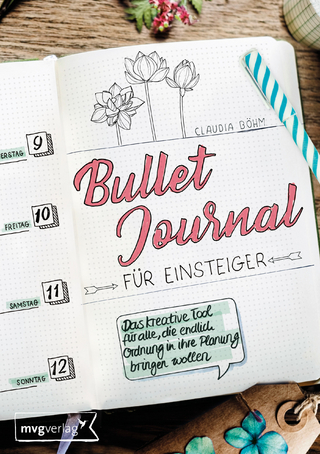 CLAUDIA BÖHM
ERSTAG 9
Bullet
Journal
FREITAG 10
FÜR EINSTEIGER
SAMSTAG 11
Das kreative Tool
für alle, die endlich
Ordnung in ihre Planung
bringen wollen
SONNTAG 12
mvgverlag